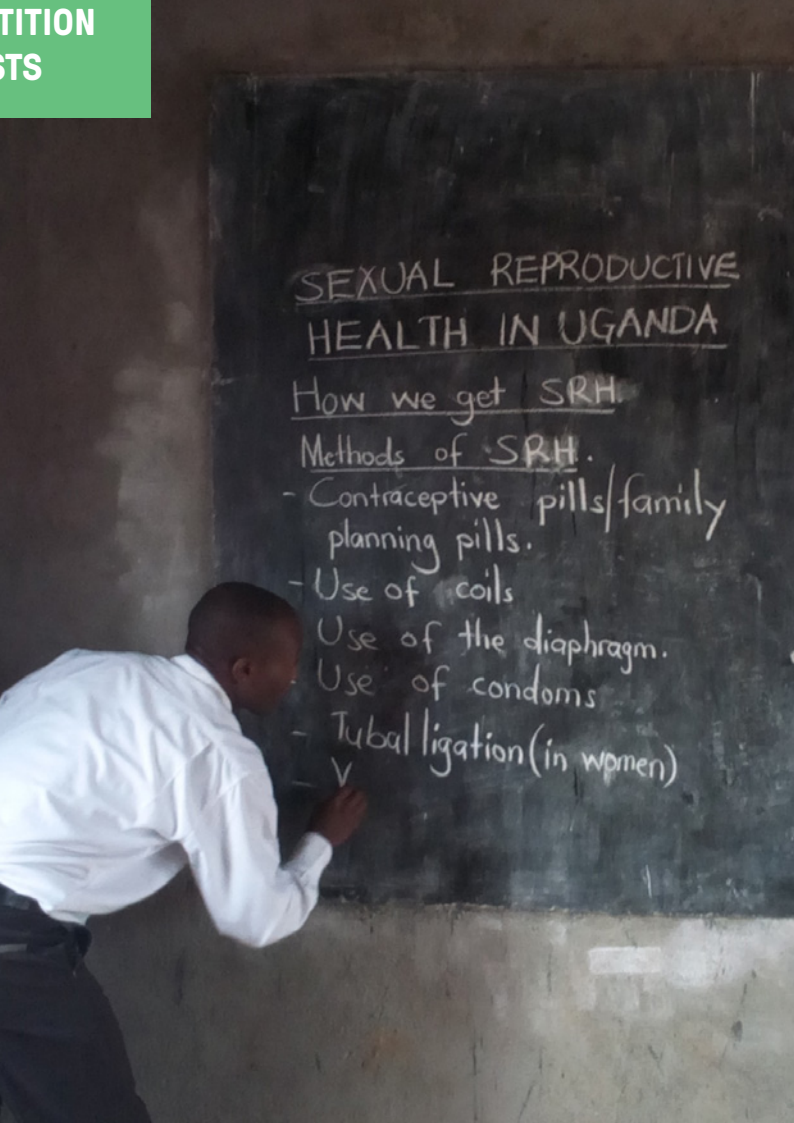 TITION
STS
SEXUAL REPRODUCTIVE
HEALTH IN UGANDA
How we get SRH.
Methods of SRH.
- Contraceptive pills/family
planning pills.
- Use of coils
Use of the diaphragm.
Use of condoms
- Tubal ligation (in women)
- V